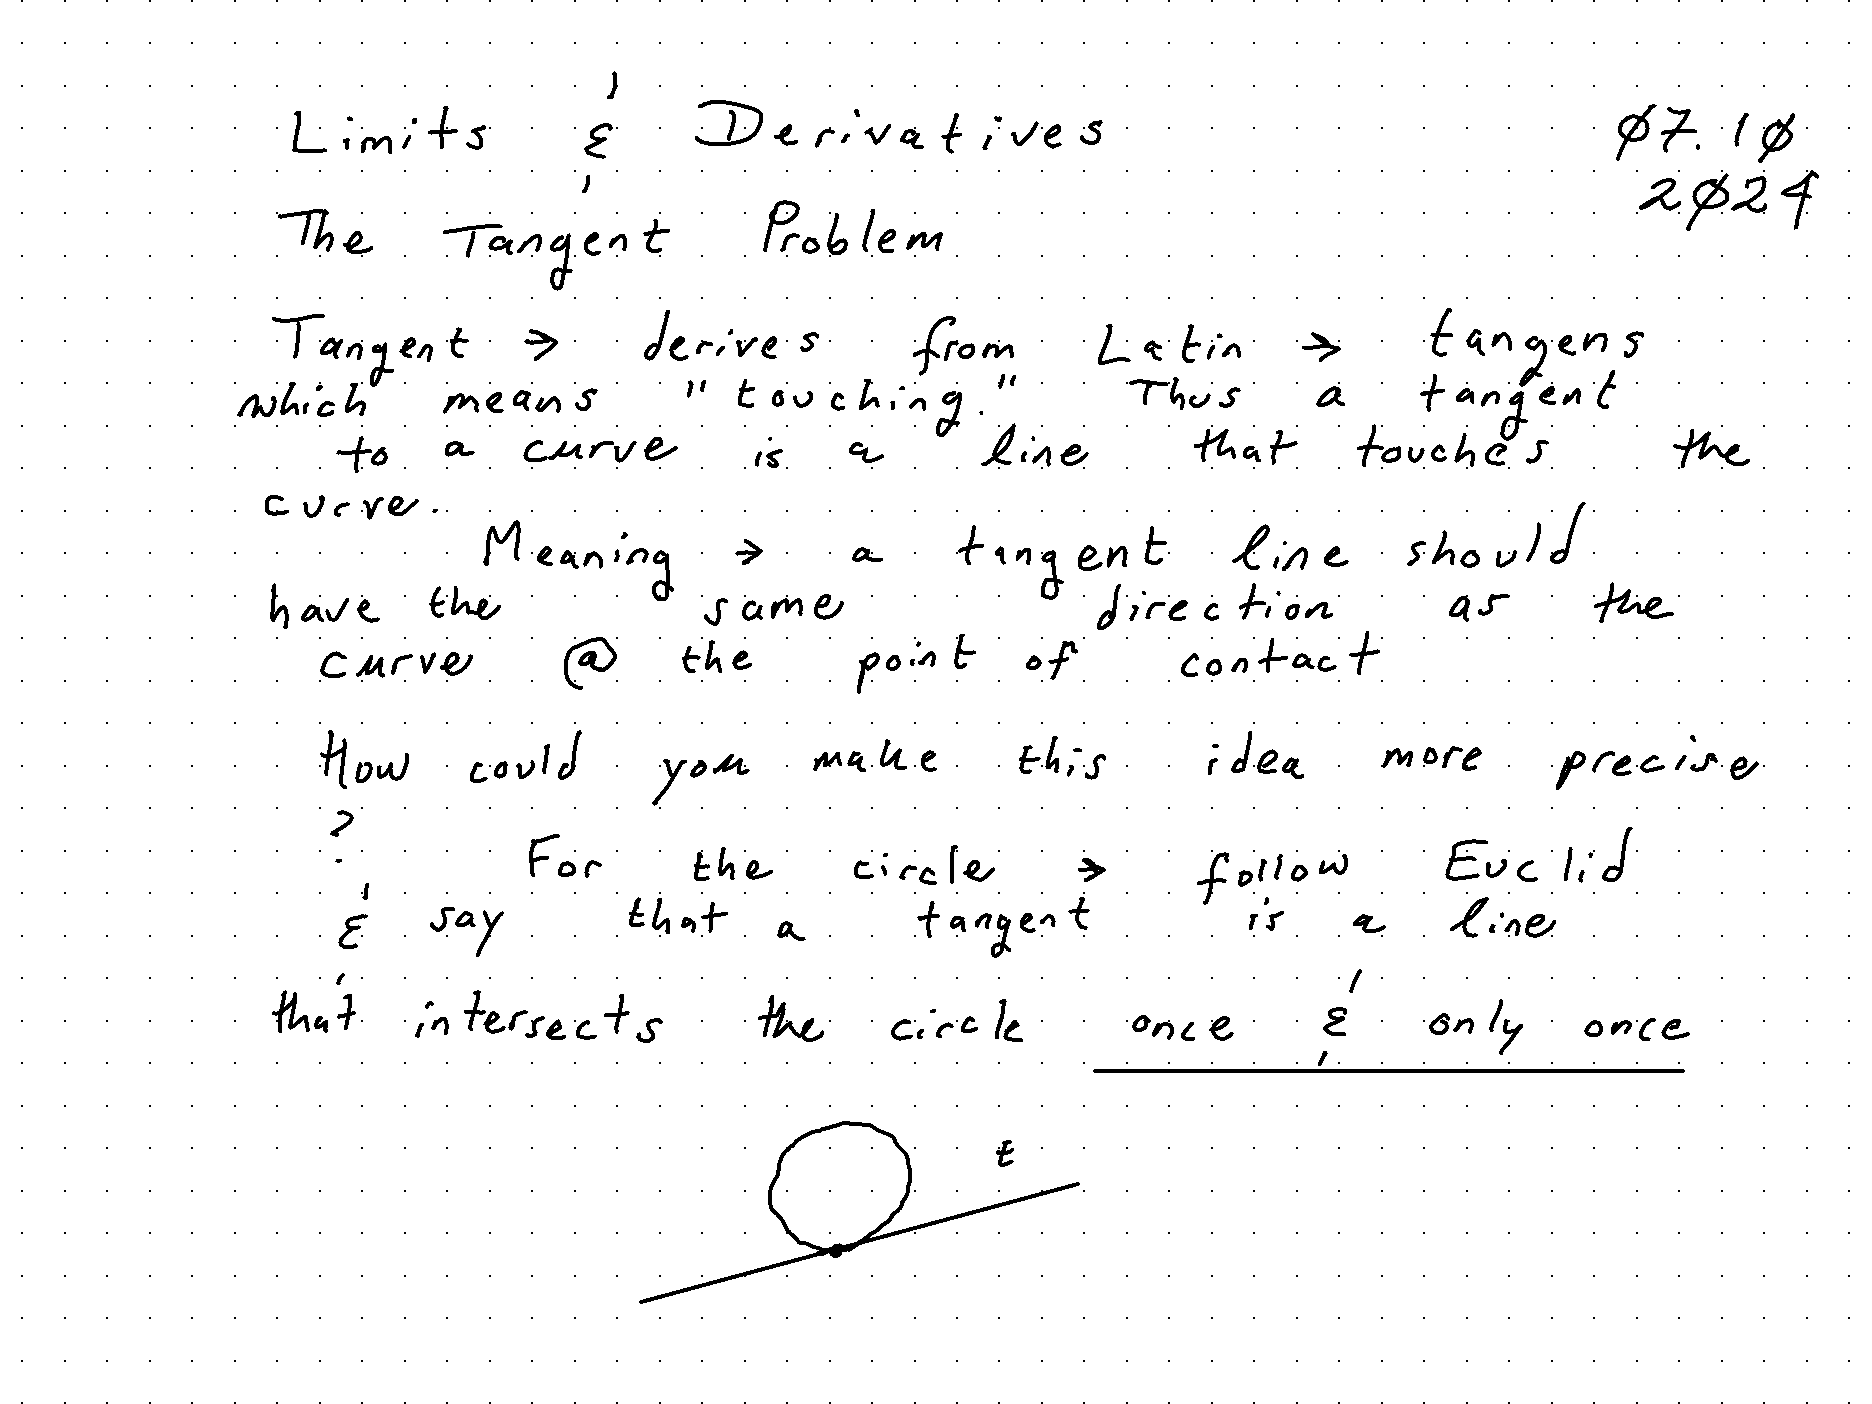 Limits & Derivatives
07.10
2024
The Tangent Problem
Tangent → derives from Latin → tangens
which means "touching." Thus a tangent
to a curve is a line that touches the
curve.
Meaning → a tangent line should
have the same direction as the
curve @ the point of contact
How could you make this idea more precise
?
For the circle → follow Euclid
& say that a tangent is a line
that intersects the circle once & only once
t